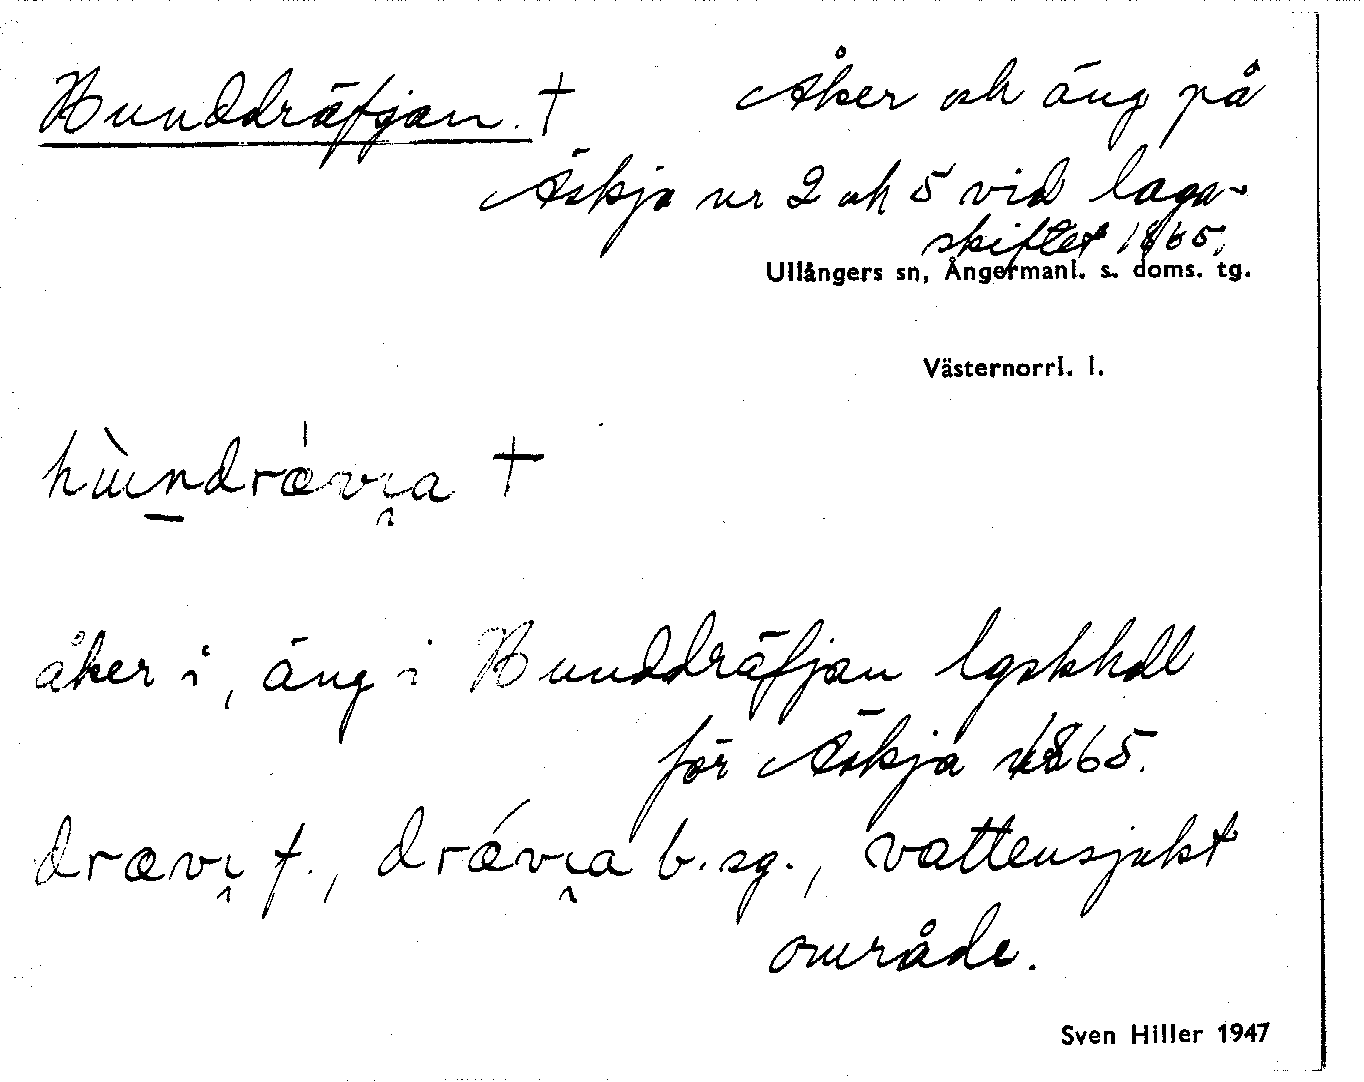 Hunddräfjan. † Åker och äng på
Äskja nr 2 och 5 vid laga
skiftet 1865.
Ullångers sn, Ångermanl. s. doms. tg.
Västernorrl. l.
hùndrǽvi̯a †
åker i, äng i Hunddräfjan lgskhdl
för Äskja 1865.
drævi̯ f., drǽvi̯a b. sg., vattensjukt
område.
Sven Hiller 1947